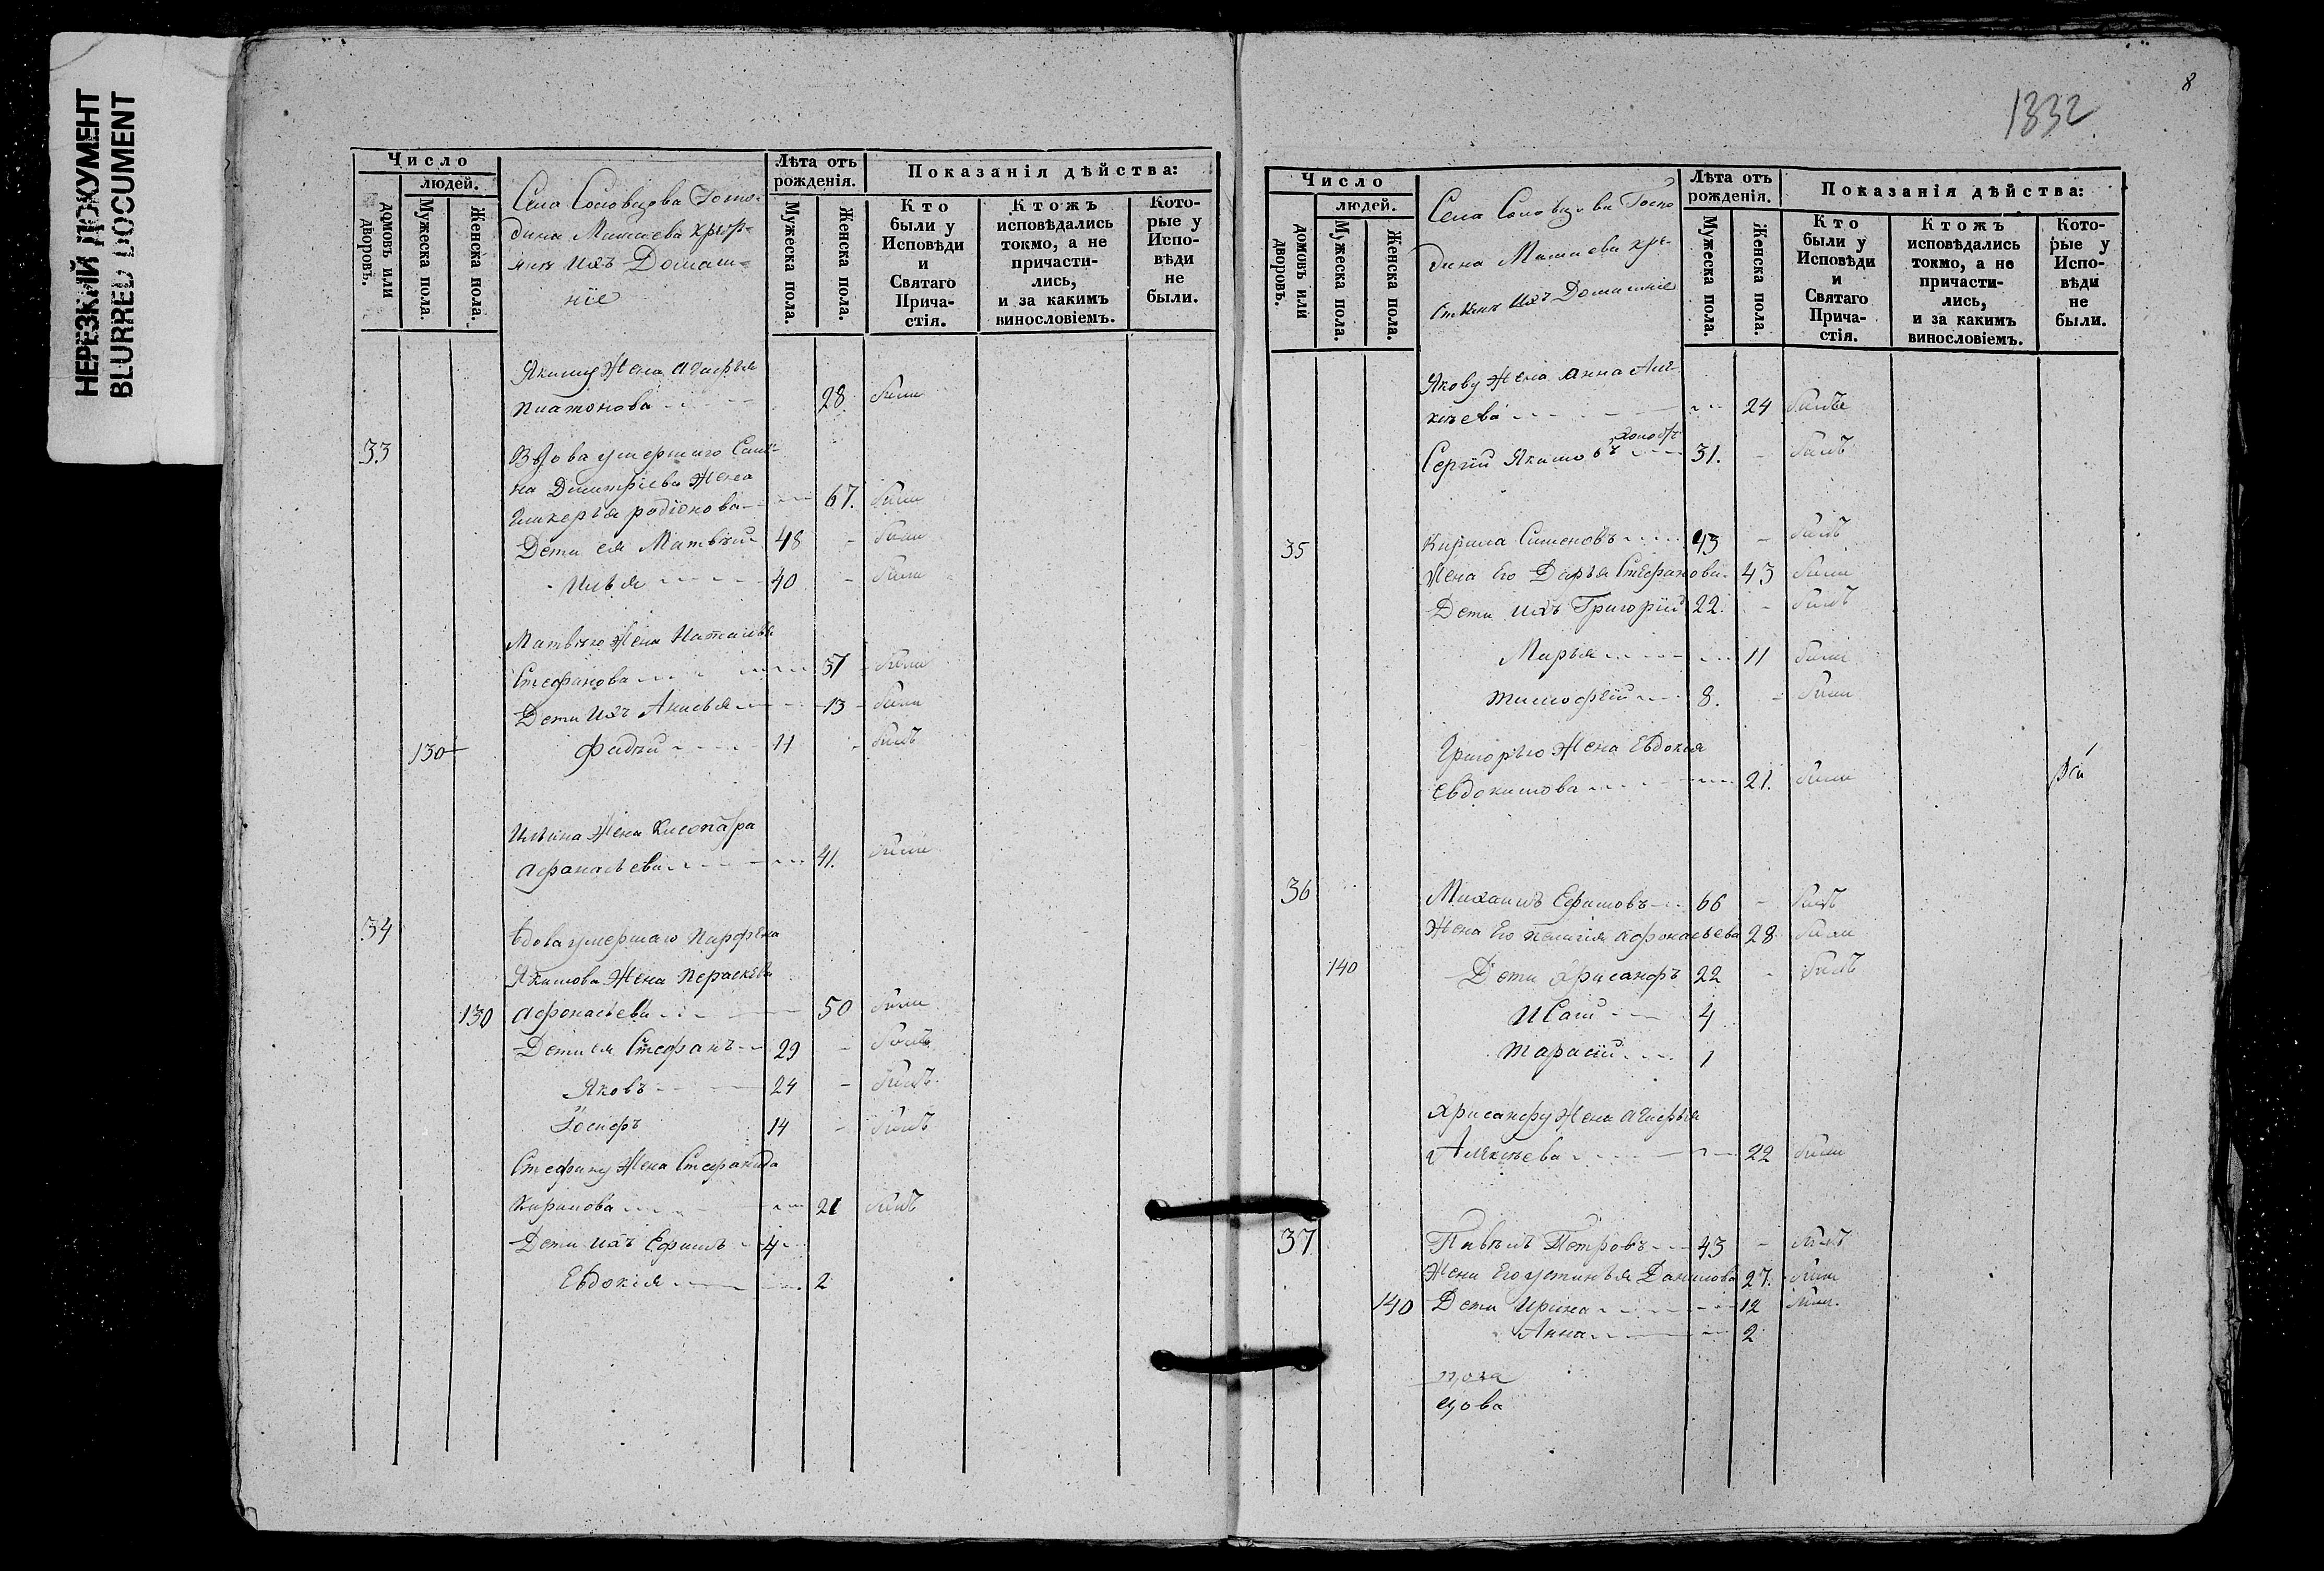 НЕРЕЗКИЙ ДОКУМЕНТ
BLURRED DOCUMENT
Число
людей.
домовъ или дворовъ.
Мужеска пола.
Женска пола.
Села Соловцова Госпо-
дина Матаева
их Домаш-
ніе
Лѣта отъ рожденія.
Мужеска пола.
Женска пола.
Показанія дѣйства:
Кто были у Исповѣди и Святаго Прича-стія.
Ктожъ исповѣдались токмо, а не причасти-лись, и за какимъ винословіемъ.
Кото-рые у Испо-вѣди не были.
Якиму Жена Агафья
Платонова 28 были
33 Вдова умершаго Сим-
на Димитріева Жена
Гликерья родіонова 67. были
Дети ея Матвѣй 48 - были
Илья 40 - были
Матвѣю Жена Наталья
Стефанова 37 - были
Дети ихъ Анисья 13 - были
130 Фадѣй 11 - былъ
Ильина Жена Клеопадра
Афанасьева 41. были
34 Вдова умершаго Парфена
Якимова Жена Параскева
130 Афонасьева 50 были
Дети ея Стефанъ 29 - былъ
Яковъ 24 - былъ
Іосифъ 14 - былъ
Стефану Жена Стефанида
Кирилова 21 былъ
Дети ихъ Ефимъ 4
Евдокія 2
8
1832
Число
людей.
домовъ или дворовъ.
Мужеска пола.
Женска пола.
Села Соловцова Госпо
дина Матаева кре-
стьянъ ихъ Домашніе
Лѣта отъ рожденія.
Мужеска пола.
Женска пола.
Показанія дѣйства:
Кто были у Исповѣди и Святаго Прича-стія.
Ктожъ исповѣдались токмо, а не причасти-лись, и за какимъ винословіемъ.
Кото-рые у Испо-вѣди не были.
Якову Жена Анна Але-
кѣева 24 былъ
Сергій Якимовъ 31. - былъ
35 Кирила Сименовъ 45 - былъ
Жена Его Дарья Стефанова 43 были
Дети ихъ Григорій 22. - былъ
Марья 11 были
тимофей 8. - были
Григорью Жена Евдокія
Евдокимова 21. были
36 Михаилъ Ефимовъ 66 - былъ
Жена Его пелагія Афонасьева 28 были
140 Дети Хрисанфъ 22 - былъ
Исаи 4
тарасій 1
Хрисанфу Жена Агафья
Алекѣева 22 были
37 Павелъ Петровъ 43 - былъ
Жена Его устинья Данилова 27. были
140 Дети Ирина 12 были
Анна 2
цова